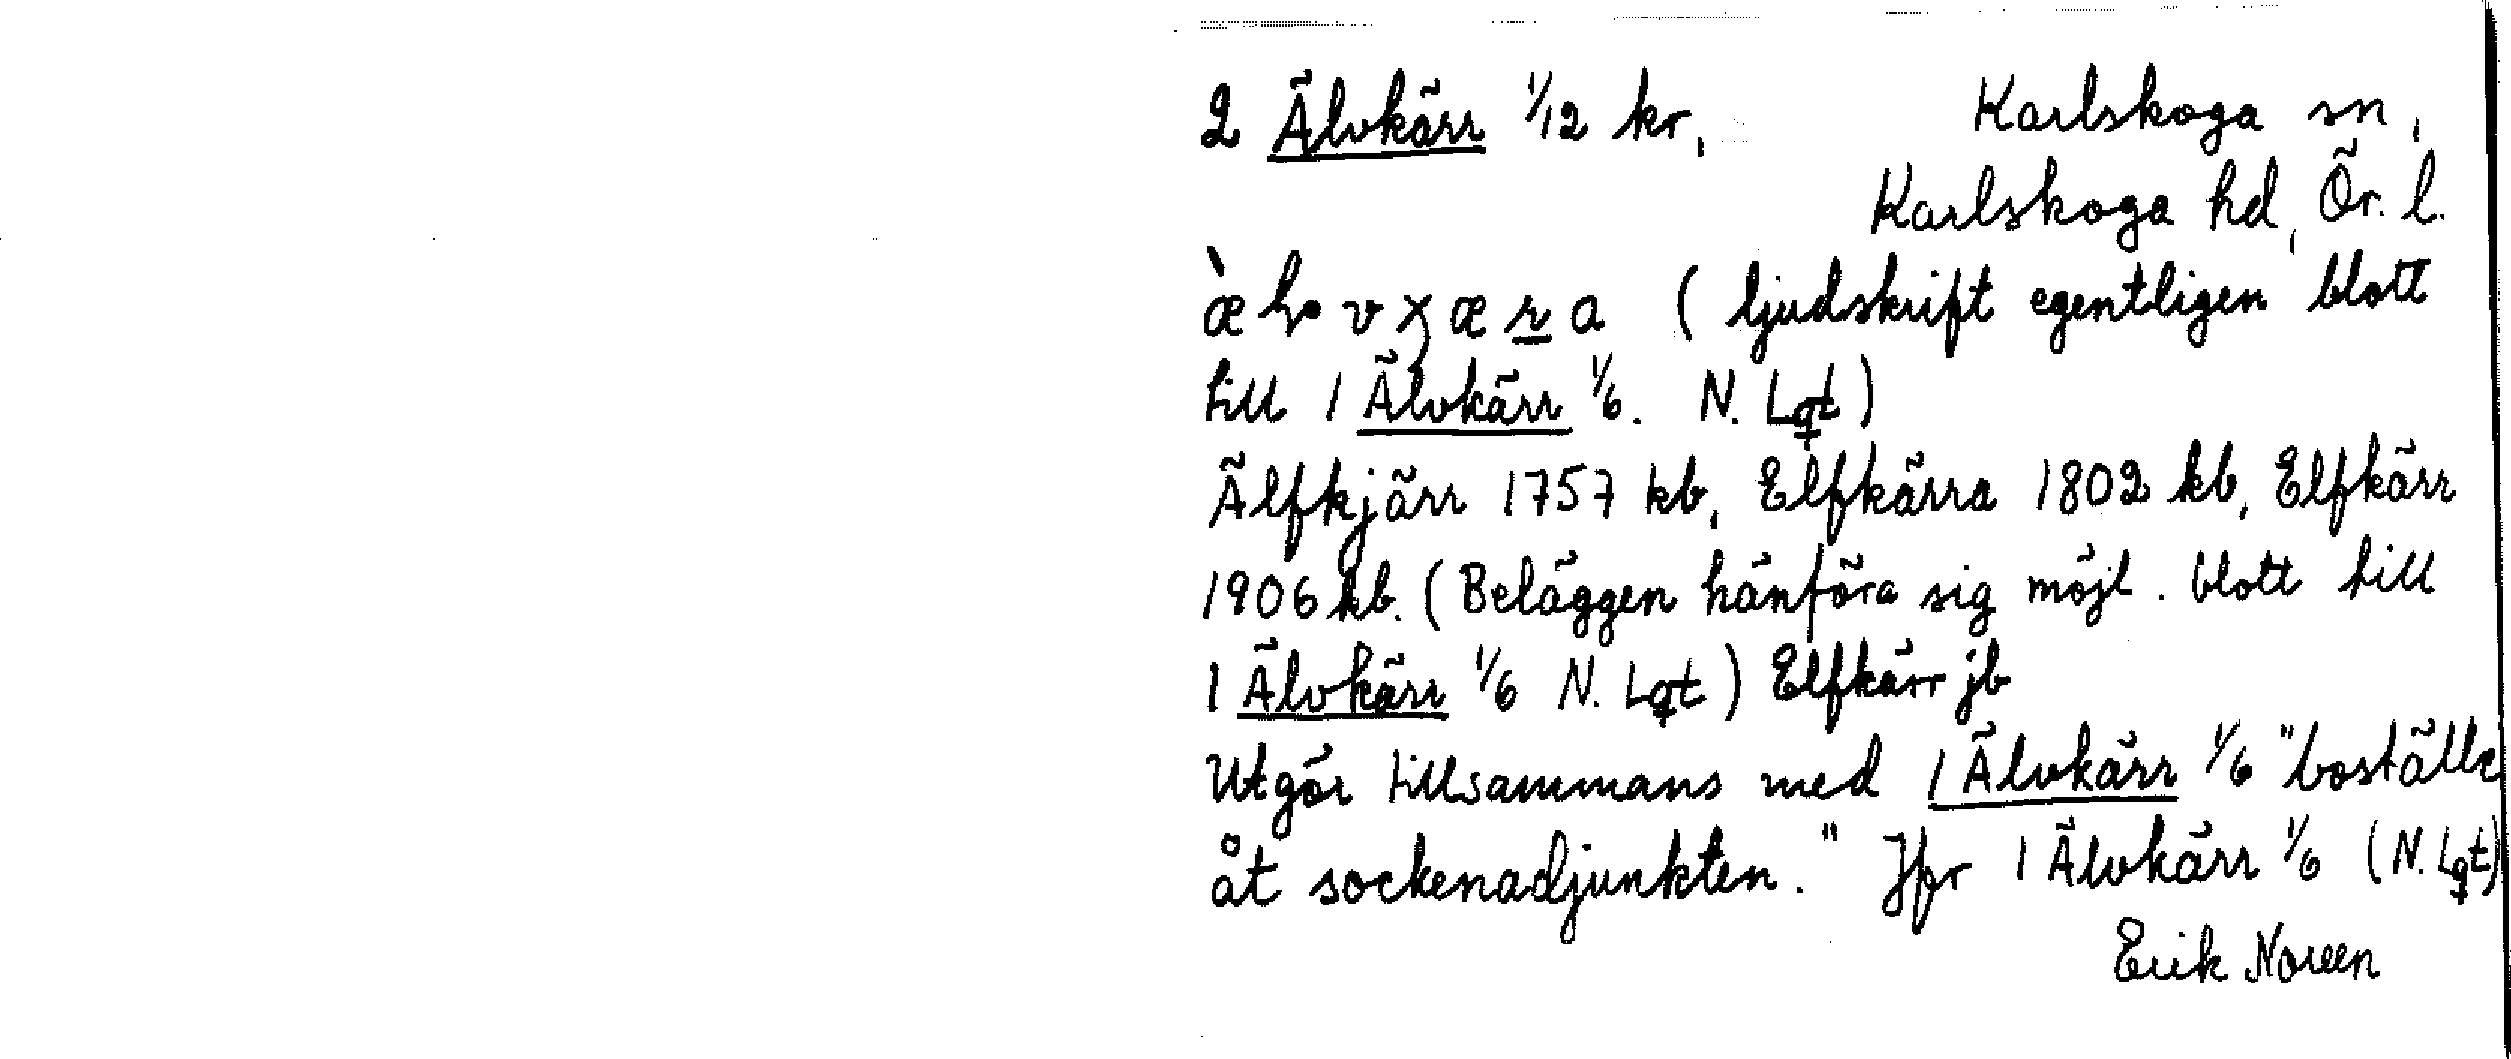 2 Älvkärr 1/12 kr, Karlskoga sn,
Karlskoga hd, Ör. l.
(ljudskrift egentligen blott
till 1 Älvkärr 1/6. N. Lgt)
Älfkjärr 1757 kb, Elfkärra 1802 kb, Elfkärr
1906 kb. (Beläggen hänföra sig möjl. blott till
1 Älvkärr 1/6 N. Lgt) Elfkärr jb
Utgör tillsammans med 1 Älvkärr 1/6 "boställe
åt sockenadjunkten." Jfr 1 Älvkärr 1/6 (N. Lgt)
Erik Noreen